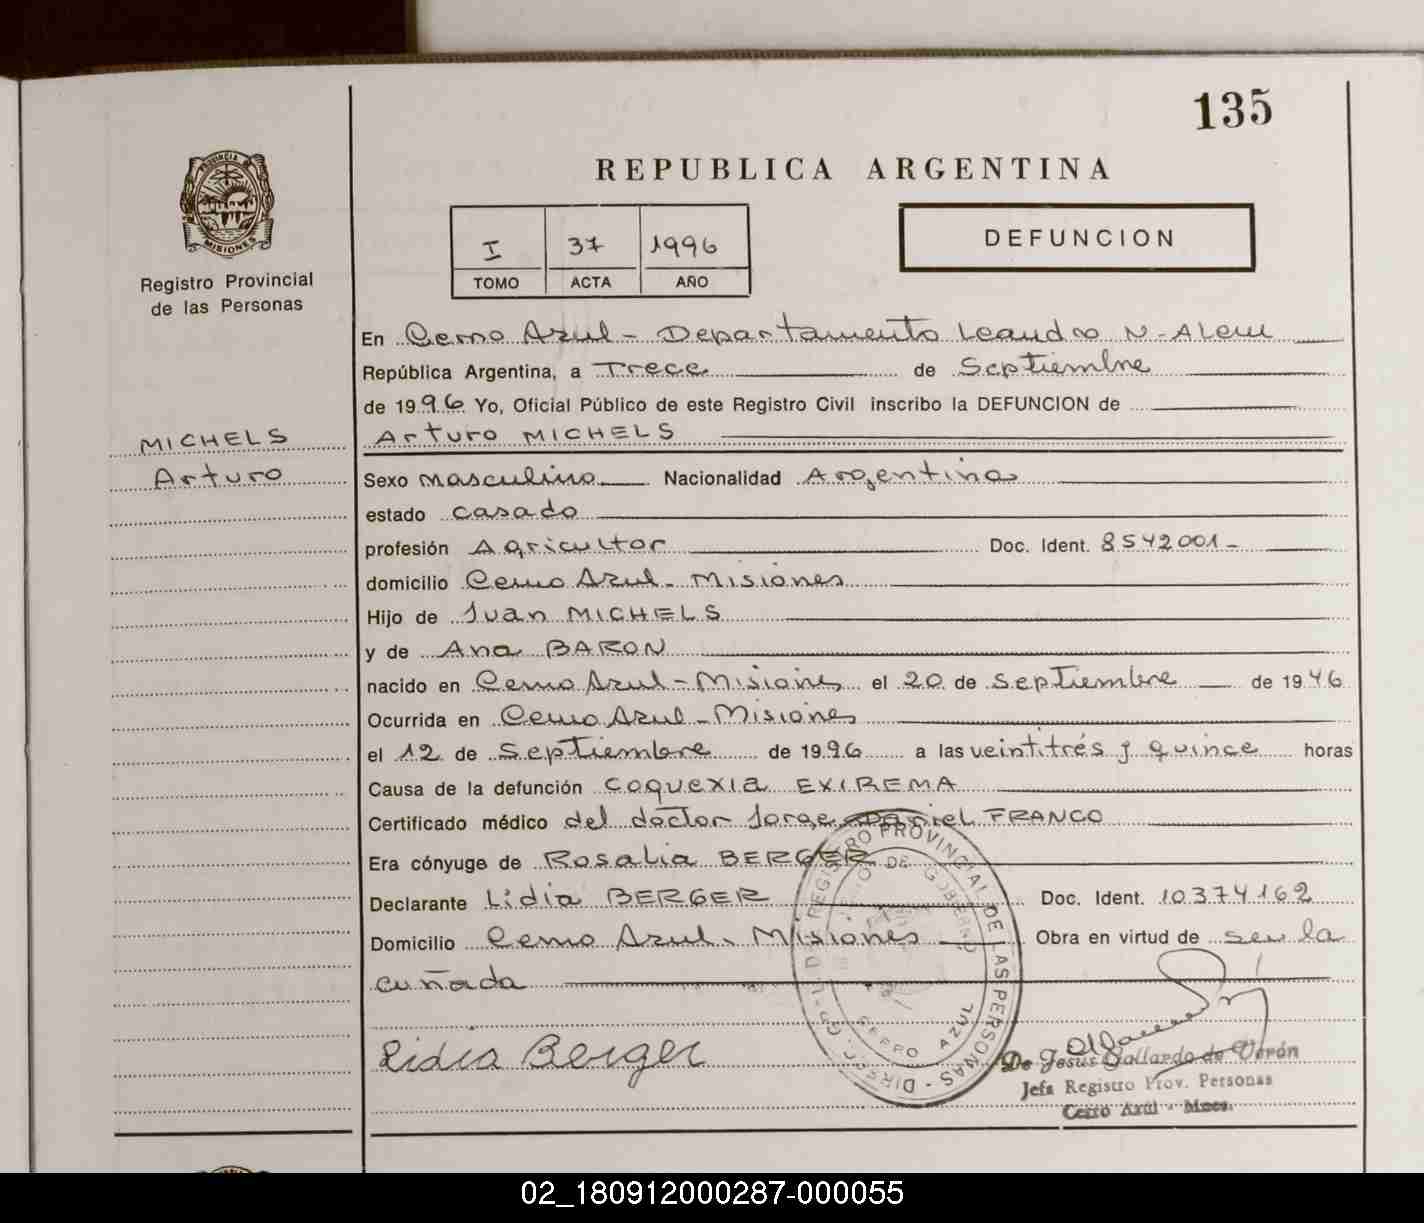 135
REPUBLICA ARGENTINA
PROVINCIA DE
MISIONES
Registro Provincial
de las Personas
I 37 1996
TOMO ACTA AÑO
DEFUNCION
En Cerro Azul - Departamento Leandro N. Alem
República Argentina, a Trece de Septiembre
de 1996 Yo, Oficial Público de este Registro Civil inscribo la DEFUNCION de
MICHELS
Arturo
Arturo MICHELS
Sexo masculino Nacionalidad Argentina
estado casado
profesión Agricultor Doc. Ident. 8542001-
domicilio Cerro Azul - Misiones
Hijo de Juan MICHELS
y de Ana BARON
nacido en Cerro Azul - Misiones el 20 de septiembre de 1946
Ocurrida en Cerro Azul - Misiones
el 12 de septiembre de 1996 a las veintitrés y quince horas
Causa de la defunción coquexia EXTREMA
Certificado médico del doctor Jorge Daniel FRANCO
Era cónyuge de Rosalia BERGER
Declarante Lidia BERGER Doc. Ident. 10374162
Domicilio Cerro Azul - Misiones Obra en virtud de ser la
cuñada
Lidia Berger
REGISTRO PROVINCIAL DE LAS PERSONAS
DE GOBIERNO
CERRO AZUL
De Jesús Gallardo de Verón
Jefa Registro Prov. Personas
Cerro Azul - Mnes.
02_180912000287-000055